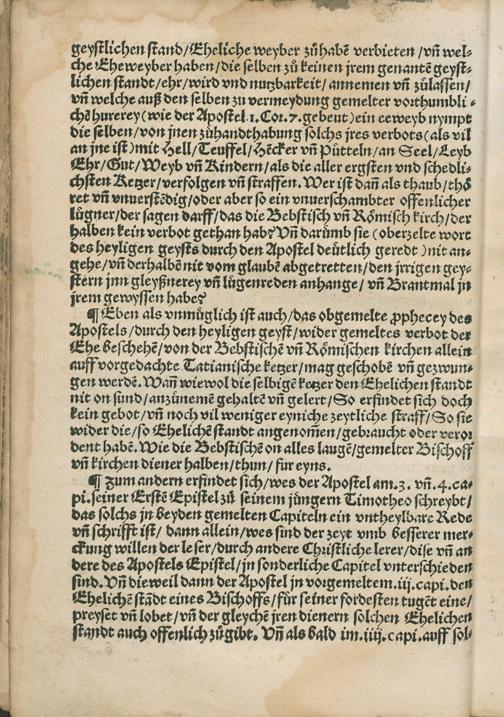 geystlichen stand/Eheliche weyber zůhabē verbieten/vñ wel⸗
che Eheweyber haben/die selben zů keinen jrem genantē geyst⸗
lichen standt/ehr/wird vnd nutzbarkeit/annemen vñ zůlassen/
vñ welche auß den selben zu vermeydung gemelter vorthumbli⸗
chē hurerey(wie der Apostel.1.Cor.7.gebeut)ein eeweyb nympt
die selben/von jnen zůhandthabung solchs jres verbots(als vil
an jne ist)mit Hell/Teuffel/Hēcker vñ Pütteln/an Seel/Leyb
Ehr/Gut/Weyb vñ Kindern/als die aller ergsten vnd schedli⸗
chsten Ketzer/verfolgen vñ straffen. Wer ist dañ als thaub/thō
ret vñ vnuerstēdig/oder aber so ein vnuerschambter offenlicher
lügner/der sagen darff/das die Bebstisch vñ Römisch kirch/der
halben kein verbot gethan hab? Vñ darumb sie (oberzelte wort
des heyligen geysts durch den Apostel deütlich geredt)nit an⸗
gehe/vñ derhalbē nit vom glaubē abgetretten/den jrrigen gey⸗
stern jnn gleyßnerey vñ lügenreden anhange/vñ Brantmal jn
jrem gewyssen habe?
¶ Eben als vnmüglich ist auch/das obgemelte ꝓphecey des
Apostels/durch den heyligen geyst/wider gemeltes verbot der
Ehe beschehē/von der Bebstischē vñ Römischen kirchen allein
auff vorgedachte Tatianische ketzer/mag geschobē vñ gezwun⸗
gen werdē. Wañ wiewol die selbigē ketzer den Ehelichen standt
nit on sünd/anzünemē gehaltē vñ gelert/So erfindet sich doch
kein gebot/vñ noch vil weniger eyniche zeytliche straff/So sie
wider die/so Ehelichē standt angenom̄en/gebraucht oder veror
dent habē. Wie die Bebstischē on alles laugē/gemelter Bischoff
vñ kirchen diener halben/thun/fur eyns.
¶ Zum andern erfindet sich/wes der Apostel am.3. vñ.4.ca⸗
pi.seiner Erstē Epistel zů seinem jüngern Timotheo schreybt/
das solchs jn beyden gemelten Capiteln ein vntheylbare Rede
vñ schrifft ist/ dann allein/wes sind der zeyt vmb besserer mer⸗
ckung willen der leser/durch andere Christliche lerer/dise vñ an
dere des Apostels Epistel/jn sonderliche Capitel vnterschieden
sind. Vñ dieweil dann der Apostel jn vorgemeltem.iij.capi.den
Ehelichē stādt eines Bischoffs/für seiner fordesten tugēt eine/
preyset vñ lobet/vñ der gleychē jren dienern solchen Ehelichen
standt auch offenlich zůgibt. Vñ als bald im.iiij.capi.auff sol⸗